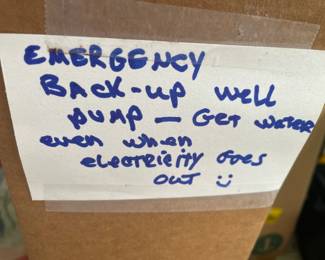 EMERGENCY
BACK-UP well
pump — Get water
even when
electricity Goes
out :)